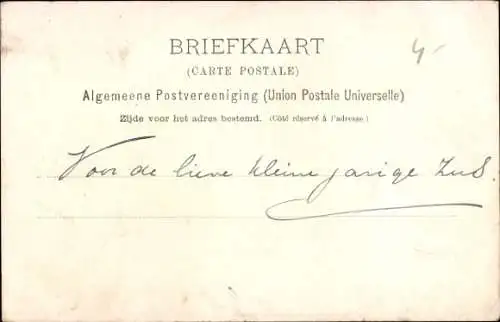 BRIEFKAART
(CARTE POSTALE)
Algemeene Postvereeniging (Union Postale Universelle)
Zijde voor het adres bestemd. (Côté réservé à l'adresse)
4-
Voor de lieve kleine jarige Zus.